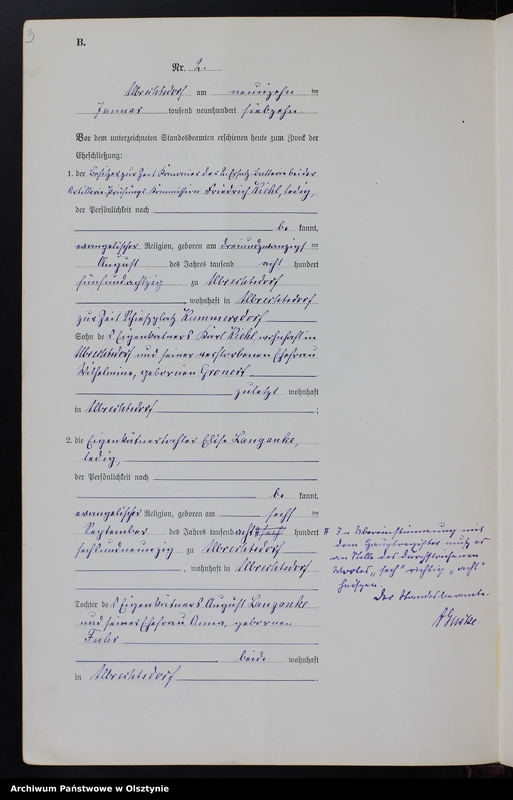 3
B.
Nr. 2.
Albrechtsdorf am neunzehn ten
Januar tausend neunhundert siebzehn
Vor dem unterzeichneten Standesbeamten erschienen heute zum Zweck der
Eheschließung:
1. der Besitzer zur Zeit Kanonier der 2. Ersatz Batterie bei der
Artillerie-Prüfungs-Kommission Friedrich Kiehl, ledig,
der Persönlichkeit nach
be kannt,
evangelischer Religion, geboren am dreiundzwanzigst ten
August des Jahres tausend acht hundert
fünfundachtzig zu Albrechtsdorf
, wohnhaft in Albrechtsdorf
zur Zeit Schießplatz Kummersdorf
Sohn des Eigenkätners Karl Kiehl, wohnhaft in
Albrechtsdorf und seiner verstorbenen Ehefrau
Wilhelmine, geborenen
zuletzt wohnhaft
in Albrechtsdorf ;
2. die Eigenkätnertochter Elise Langanke,
ledig,
der Persönlichkeit nach
be kannt,
evangelischer Religion, geboren am sechs ten
September des Jahres tausend acht sech hundert
sechsundneunzig zu Albrechtsdorf
, wohnhaft in Albrechtsdorf
Tochter des Eigenkätners August Langanke
und seiner Ehefrau Anna, geborenen
Fuhr
beide wohnhaft
in Albrechtsdorf .
In Übereinstimmung mit
dem Hauptregister muß es
an Stelle des durchstrichenen
Wortes „sech" richtig „acht"
heißen.
Der Standesbeamte.
Archiwum Państwowe w Olsztynie